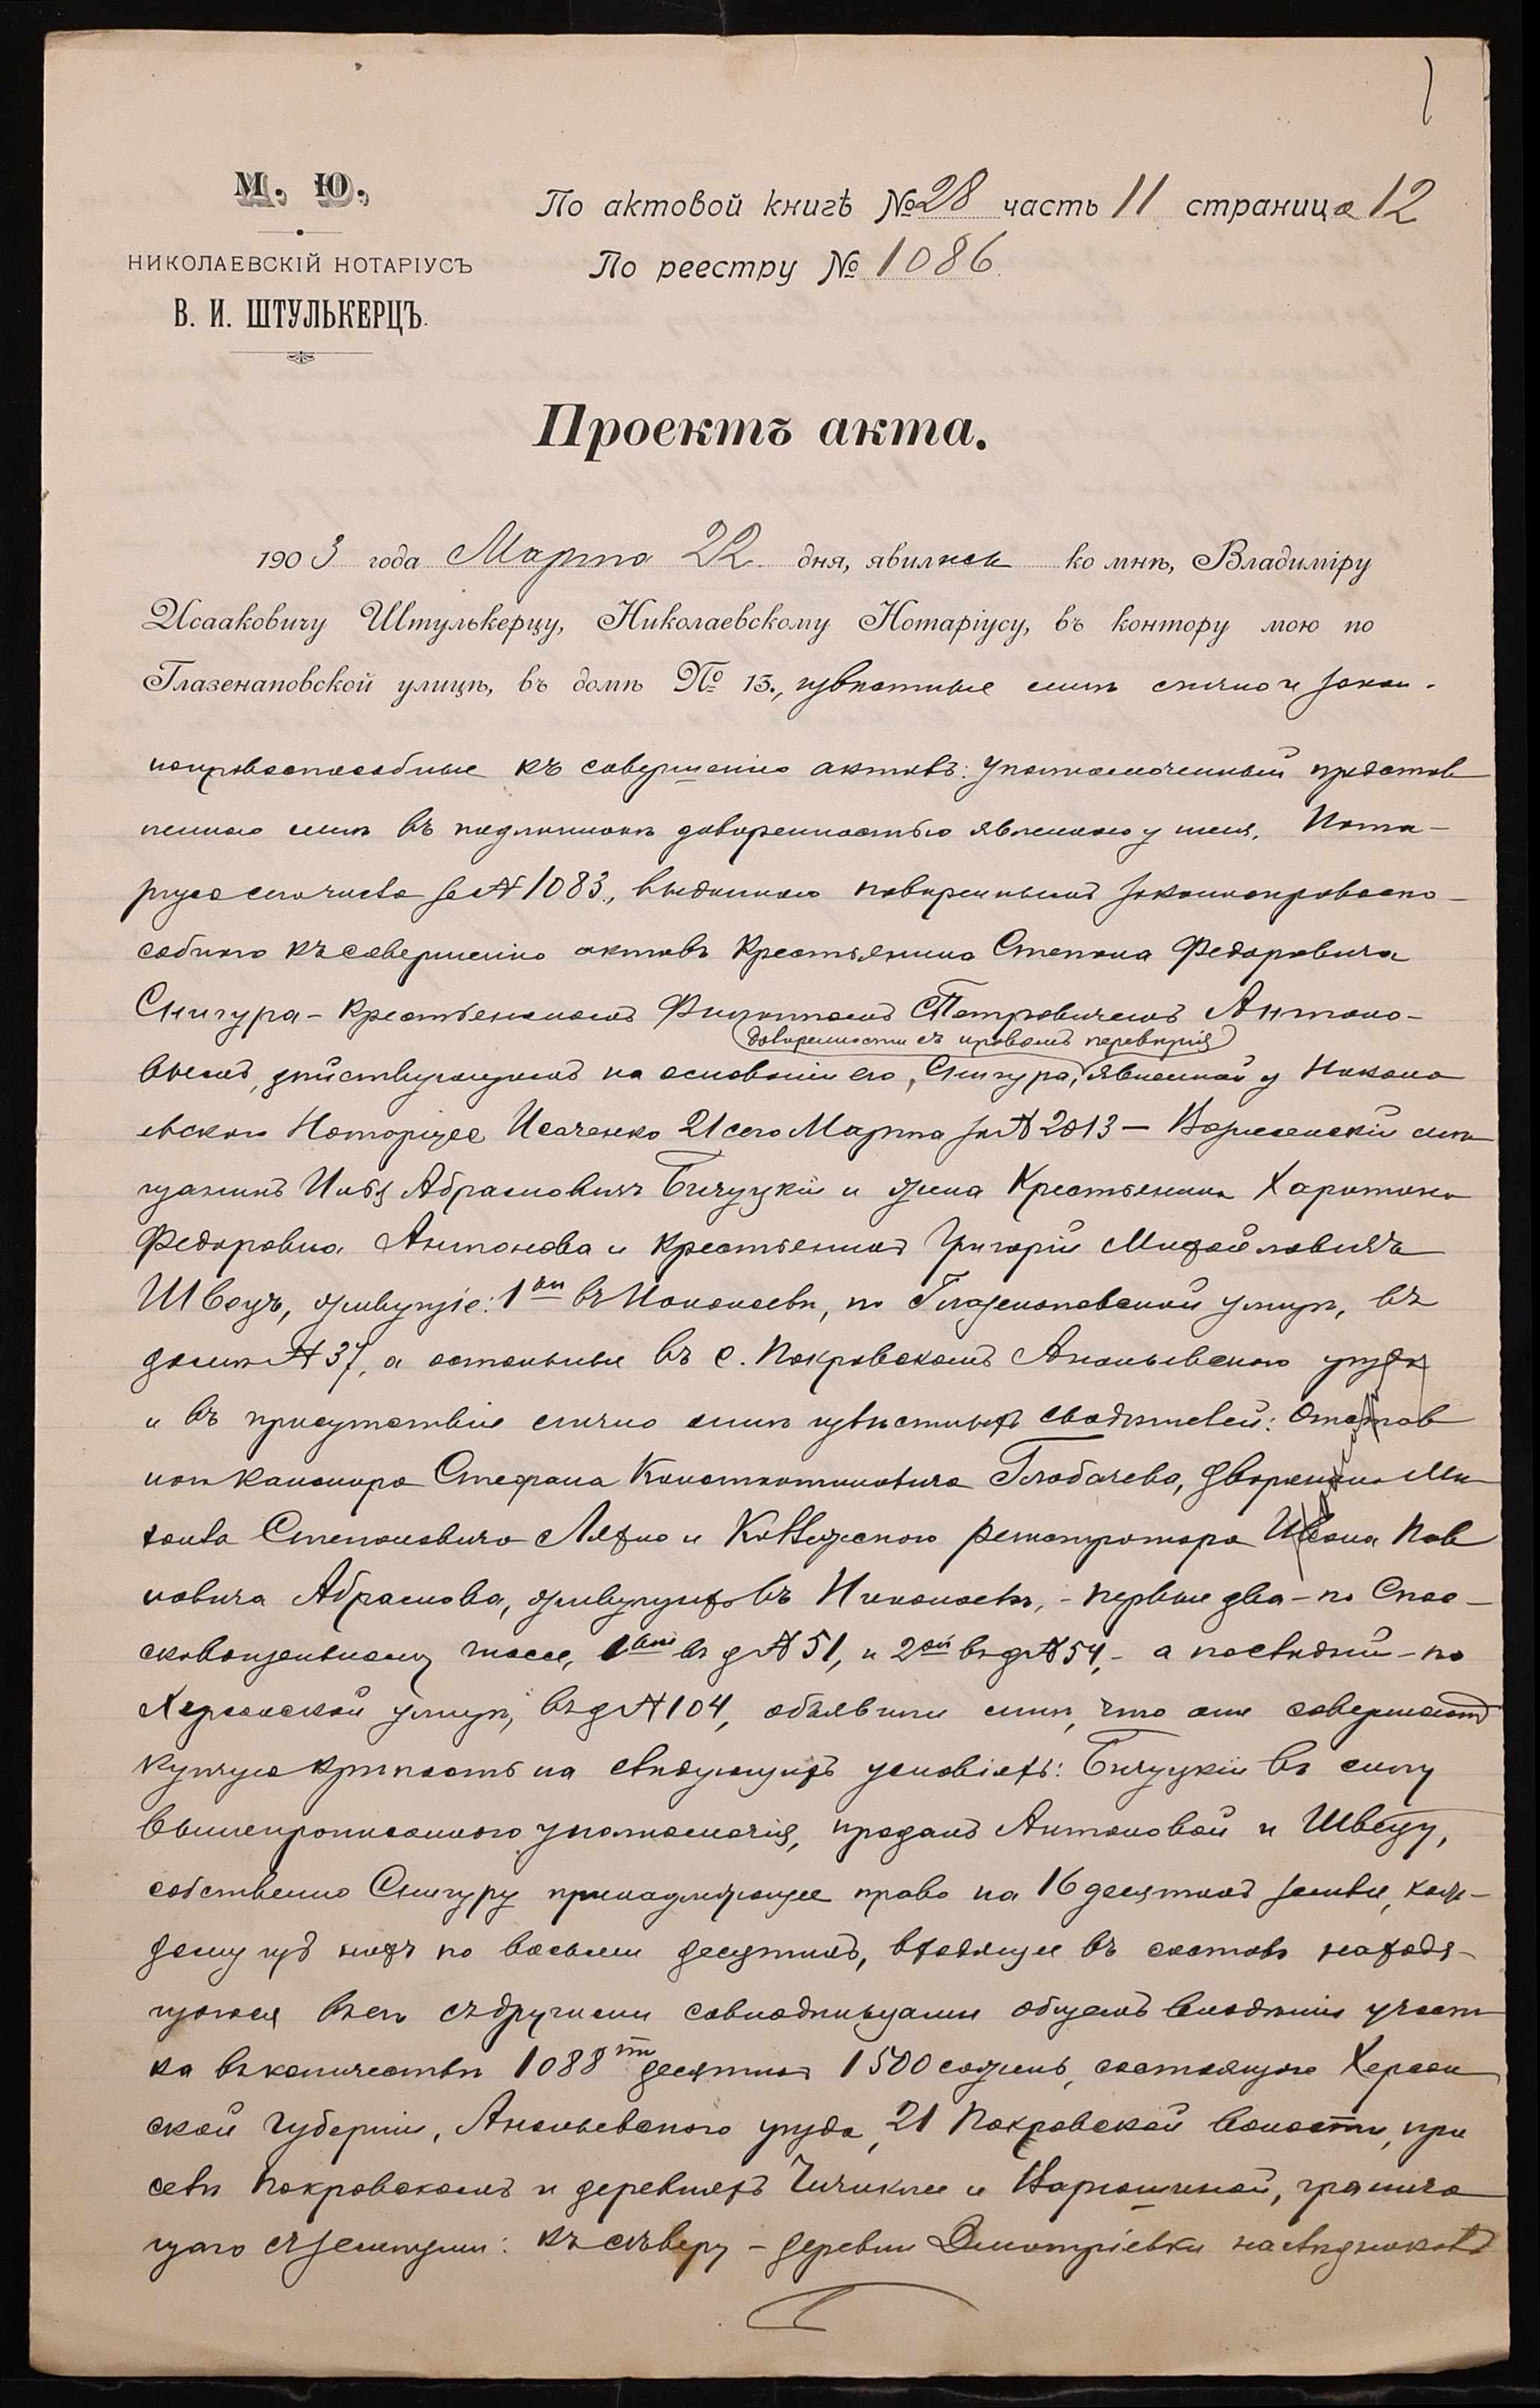 М. Ю.
НИКОЛАЕВСКІЙ НОТАРІУСЪ
В. И. ШТУЛЬКЕРЦЪ.
По актовой книгѣ № 28 часть 11 страница 12
По реестру № 1086
Проектъ акта.
1903 года Марта 22 дня, явились ко мнѣ, Владиміру
Исааковичу Штулькерцу, Николаевскому Нотаріусу, въ контору мою по
Глазенаповской улицѣ, въ домѣ № 13., извѣстные мнѣ лично и закон-
ноправоспособные къ совершенію актовъ: уполномоченный представ
ленною мнѣ въ подлинникѣ довѣренностью явленною у меня, Нота-
ріуса сего числа за № 1083, выданною повѣреннымъ законноправоспо-
собнаго къ совершенію актовъ Крестьянина Степана Федоровича
Снигура - Крестьяниномъ Филиппомъ Петровичемъ Антоно-
довѣренности съ правомъ перевѣрія
вымъ, дѣйствующимъ на основаніи его, Снигура, явленной у Никола
евскаго Нотаріуса Исаченко 21 сего Марта за № 2013 - Вознесенскій мѣ
щанинъ Илья Абрамовичъ Бичуцкій и жена Крестьянина Харитина
Федоровна Антонова и Крестьянинъ Григорій Михайловичъ
Швецъ, живущіе: 1ый въ Николаевѣ, по Глазенаповской улицѣ, въ
домѣ № 37, а остальные въ с. Покровскомъ Ананьевскаго уѣзда
и въ присутствіи лично мнѣ извѣстныхъ свидѣтелей: Отстав
ного Стефана Константиновича Глобачева, дворянина Ми
хаила Степановича Ляхно и Коллежскаго регистратора Ивана Пав
ловича Абрамова, живущихъ въ Николаевѣ, - первые два - по Спас-
скому шоссе, 1ый въ д № 51, и 2ой въ д № 54, - а послѣдній - по
Херсонской улицѣ, въ д № 104, объявили мнѣ, что они совершаютъ
купчую крѣпость на слѣдующихъ условіяхъ: Бичуцкій въ силу
вышепрописаннаго уполномочія, продалъ Антоновой и Швецу,
собственно Снигуру принадлежащее право на 16 десятинъ земли, каж-
дому изъ нихъ по восьми десятинъ, входящее въ составъ находя-
щагося въ его съ другими совладѣльцами общемъ владѣніи участ
ка въ количествѣ 1088ми десятинъ 1500 сажень, состоящаго Херсон
ской губерніи, Ананьевскаго уѣзда, 21 Покровской волости, при
селѣ Покровскомъ и деревняхъ Чичиклеи и Варюшиной, гранича
щаго съ землями: къ сѣверу - деревни Дмитріевки наслѣдниковъ